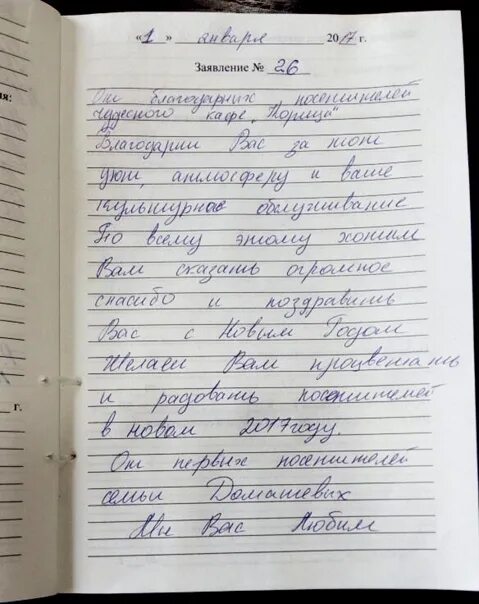 « 1 » января 2017 г.
Заявление № 26
От благодарных посетителей
чудесного кафе „Корица"
Благодарим Вас за тот
уют, атмосферу и ваше
культурное обслуживание
По всему этому хотим
Вам сказать огромное
спасибо и поздравить
Вас с Новым Годом
Желаем Вам процветать
и радовать посетителей
в новом 2017 году.
От первых посетителей
семьи Домашевых
Мы Вас Любим
г.